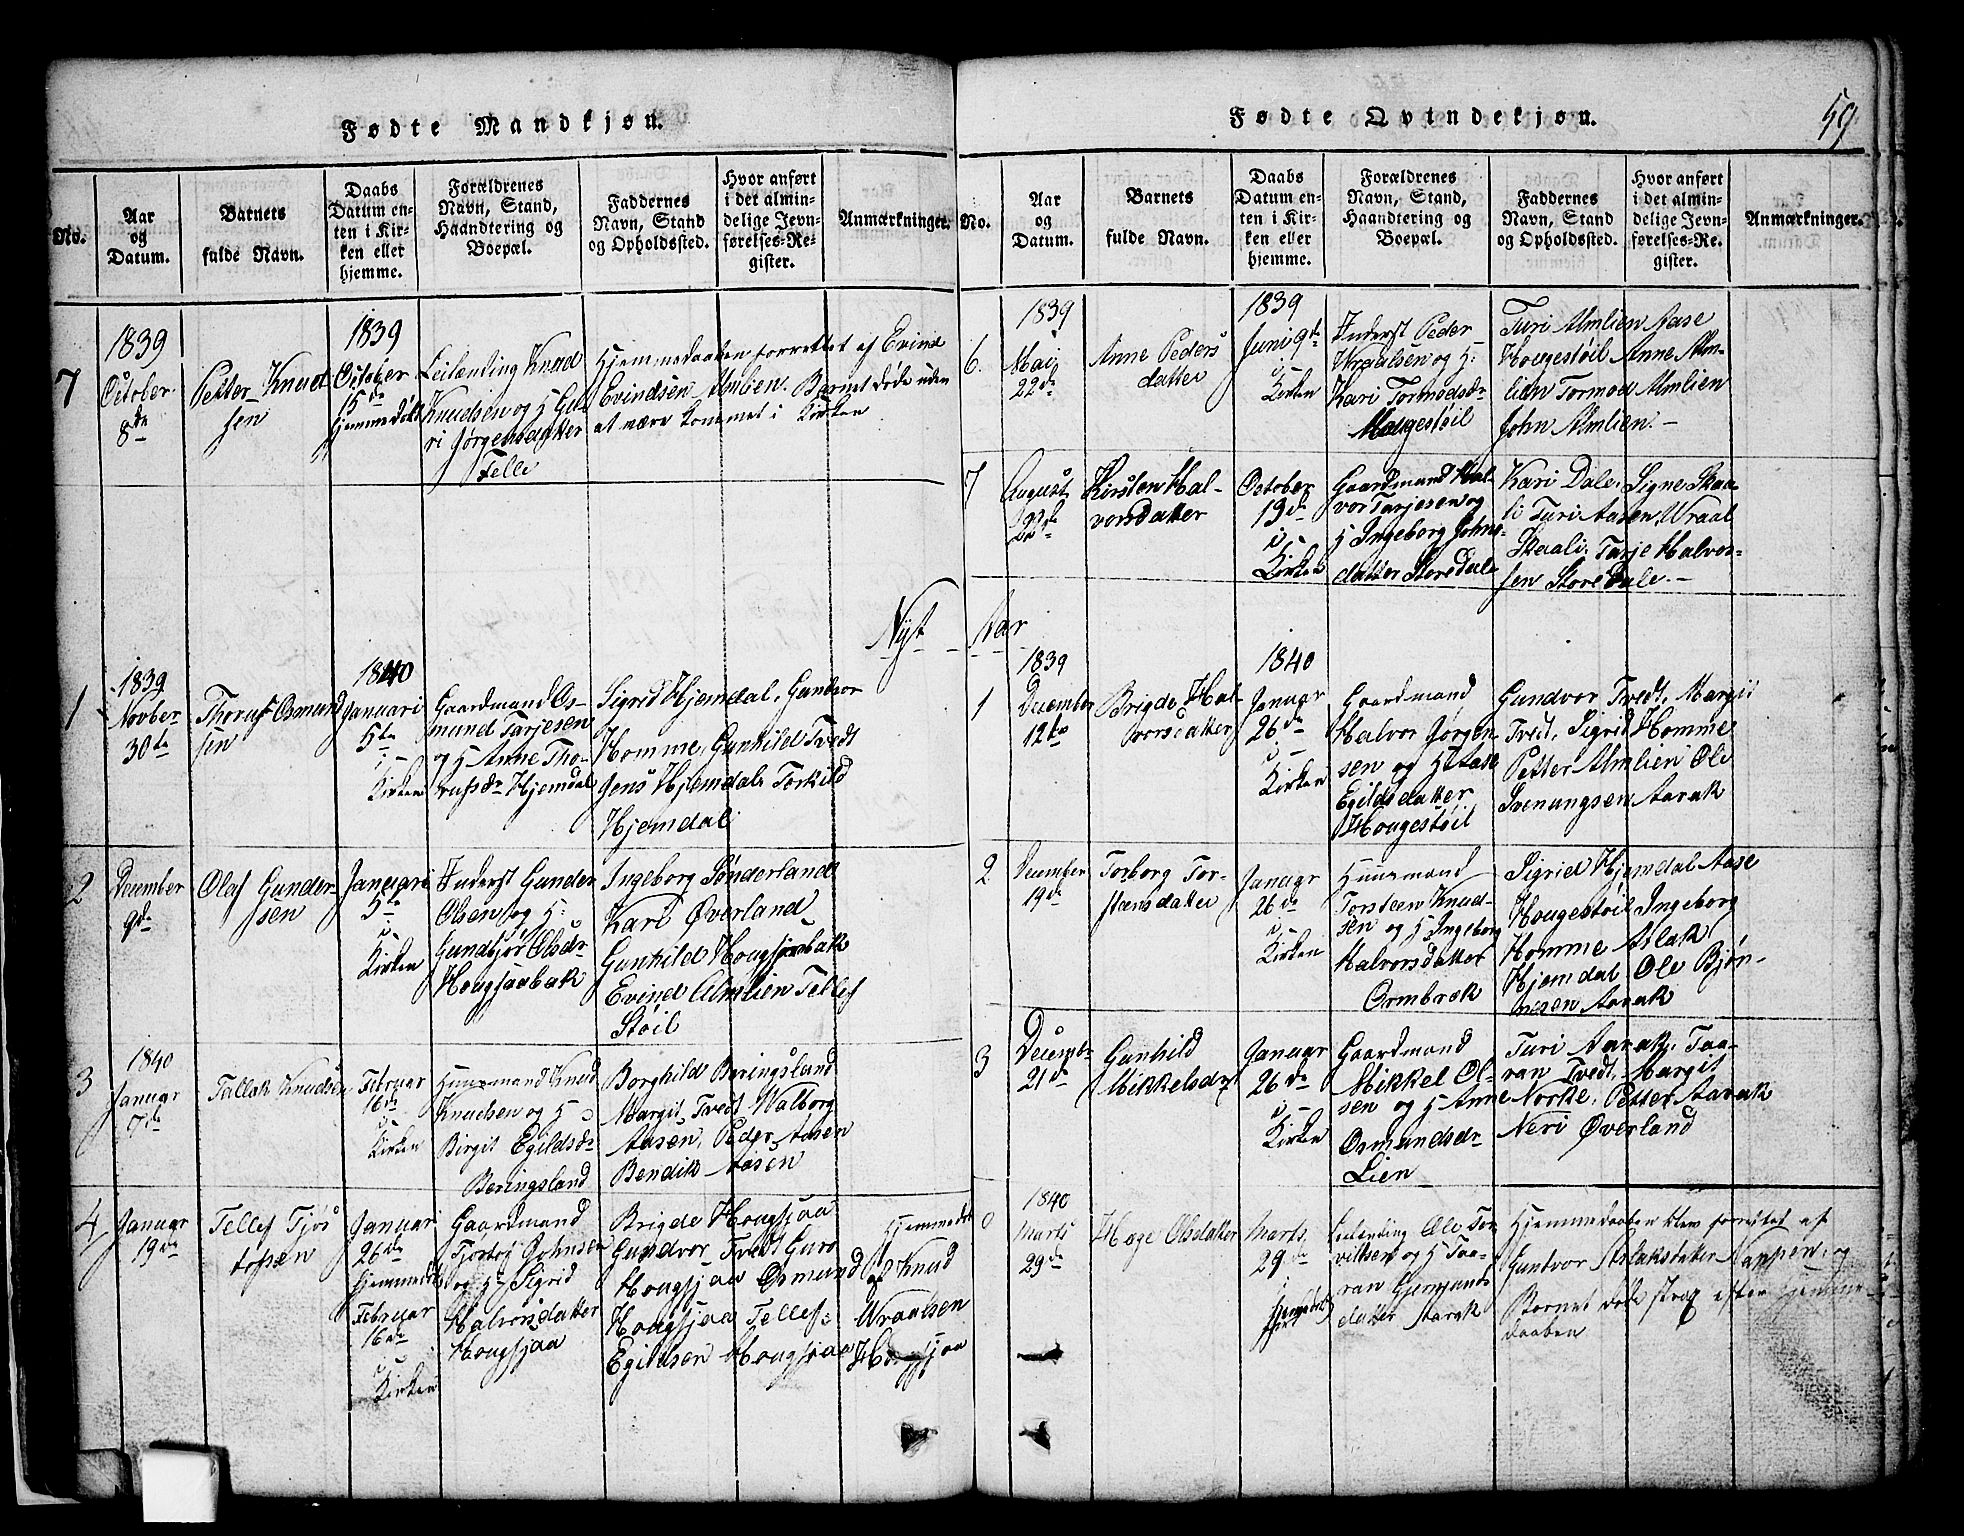 Fødte Mandkjøn.
No.
Aar og Datum.
Barnets fulde Navn.
Daabs Datum enten i Kirken eller hjemme.
Forældrenes Navn, Stand, Haandtering og Boepæl.
Faddernes Navn, Stand og Opholdssted.
Hvor anført i det almindelige Jevnførelses-Register.
Anmærkninger.
7
1839
October
8de
Petter Knud
sen
1839
October
15de
hjemmedøbt
Leilænding Knud
Knudsen og H Gu
ri Jørgensdatter
Felle
Hjemmedaaben forrettet af Evind
Evindsen Almlien. Barnet døde uden
at være kommet i Kirken
Nyt Aar
1
1839
Novber
30te
Thoruf Osmund
sen
1840
Januari
5te
i
Kirken
Gaardmand Os-
mund Tarjesen
og H Anne Tho-
rufsdr Hjemdal
Sigrid Hjemdal, Gundvor
Homme, Gunhild Tvedt
Jens Hjemdal Torkild
Hjemdal
2
December
9de
Olaf Gunder
sen
Januari
5te
i
Kirken
Inderst Gunder
Olsen og H:
Gundbjør Olsdr
Hougsjaabak
Ingeborg Sønderland
Kari Øverland
Gunhild Hougsjaabak
Evind Almlien Tellef
Støil
3
1840
Januar
7de
Tallak Knudsen
Februar
16de
i
Kirken
Huusmand Knud
Knudsen og H
Birgit Egildsdr
Beringsland
Borghild Beringsland
Margit Tvedt Walborg
Aasen, Peder Aasen
Bendik Aasen
4
Januar
19de
Tellef Tjøs
tolsen
Januar
26de
hjemmedøbt
Februar
16de
i
Kirken
Gaardmand
Tjøstol Johnsen
og H Sigrid
Halvorsdatter
Hougsjaa
Brigde Hougsjaa
Gundvor Tvedt Guro
Hougsjaa Osmund
Hougsjaa Tellef
Egildsen Hougsjaa
Hjemmedøbt
af Knud
Wraalsen
Hougsjaa
Fødte Qvindekjøn.
59
No.
Aar og Datum.
Barnets fulde Navn.
Daabs Datum enten i Kirken eller hjemme.
Forældrenes Navn, Stand, Haandtering og Boepæl.
Faddernes Navn, Stand og Opholdssted.
Hvor anført i det almindelige Jevnførelses-Register.
Anmærkninger.
6.
1839
Mai
22de
Anne Peders
datter
1839
Juni 9de
i
Kirken
Inderst Peder
Wraalsen og H:
Kari Tormodsdr
Hougestøil
Turi Almlien Aase
Hougestøil Anne Alm-
lien Tormod Almlien
John Almlien.-
7
August
22de
Kirsten Hal-
vorsdatter
October
13de
i
Kirken
Gaardmand Hal-
vor Tarjesen og
H Ingeborg Johns-
datter Storedale
Kari Dale, Signe Skaa-
li Turi Aasen, Wraal
Skaali, Tarje Halvor-
sen Storedale.-
1
1839
December
12te
Brigde Hal-
vorsdatter
1840
Januar
26de
i
Kirken
Gaardmand
Halvor Jørgen
sen og H Aase
Egildsdatter
Hougestøil
Gundvor Tvedt, Margit
Tvedt, Sigrid Homme
Petter Almlien Ole
Svenungsen Aarak
2
December
19de
Torborg Tor-
stensdatter
Januar
26de
i
Kirken
Huusmand
Torsteen Knud-
sen og H Ingeborg
Halvorsdatter
Ormbrek
Sigrid Hjemdal Aase
Hougestøil Ingeborg
Homme Aslak
Hjemdal Ole Bjøn-
nesen Aarak
3
Decembr
21de
Gunhild
Mikkelsdr
Januar
26de
i
Kirken
Gaardmand
Mikkel Ol-
sen og H Anne
Osmundsdr
Lien
Turi Aarak, Taa-
ran Tvedt, Margit
Norke, Petter Aarak
Neri Øverland
0
1840
Marts
29de
Hæge Olsdatter
Marts
29de
i
Leilænding Ole Tor
vildsen og H Taa-
ran Gunmunds
datter Aarak
Hjemmedaaben blev forrettet af
Gundvor Aslaksdatter Nappen, og
Barnet døde strax efter Hjemme-
daaben